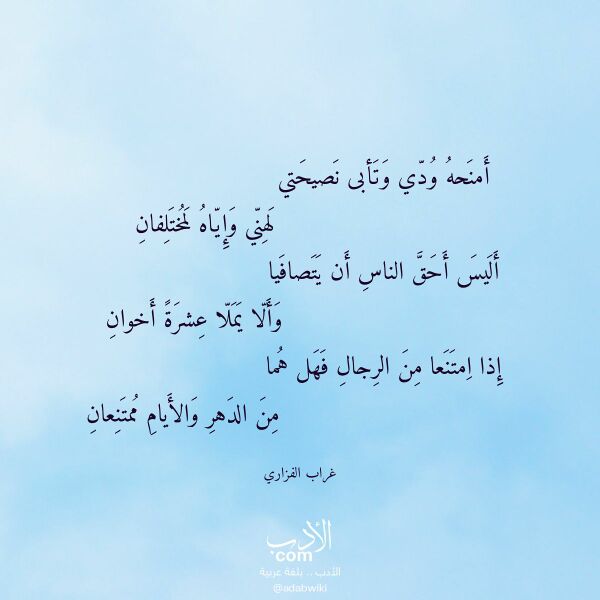 أَمنَحهُ وُدّي وَتَأبى نَصيحَتي
لَهِنّي وَإِيّاهُ لَمُختَلِفانِ
أَلَيسَ أَحَقَّ الناسِ أَن يَتَصافَيا
وَأَلّا يَمَلّا عِشرَةً أَخوانِ
إِذا اِمتَنَعا مِنَ الرِجالِ فَهَل هُما
مِنَ الدَهرِ وَالأَيامِ مُمتَنِعانِ
غراب الفزاري
الأدب
com
الأدب .. بلغة عربية
@adabwiki